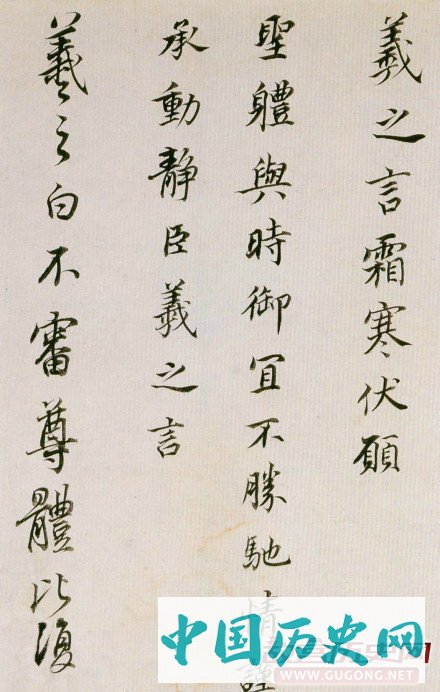 羲之言霜寒伏願
聖體與時御宜不勝馳情謹
承動靜臣羲之言
羲之白不審尊體比復
中国历史网
www.GUGONG.NET